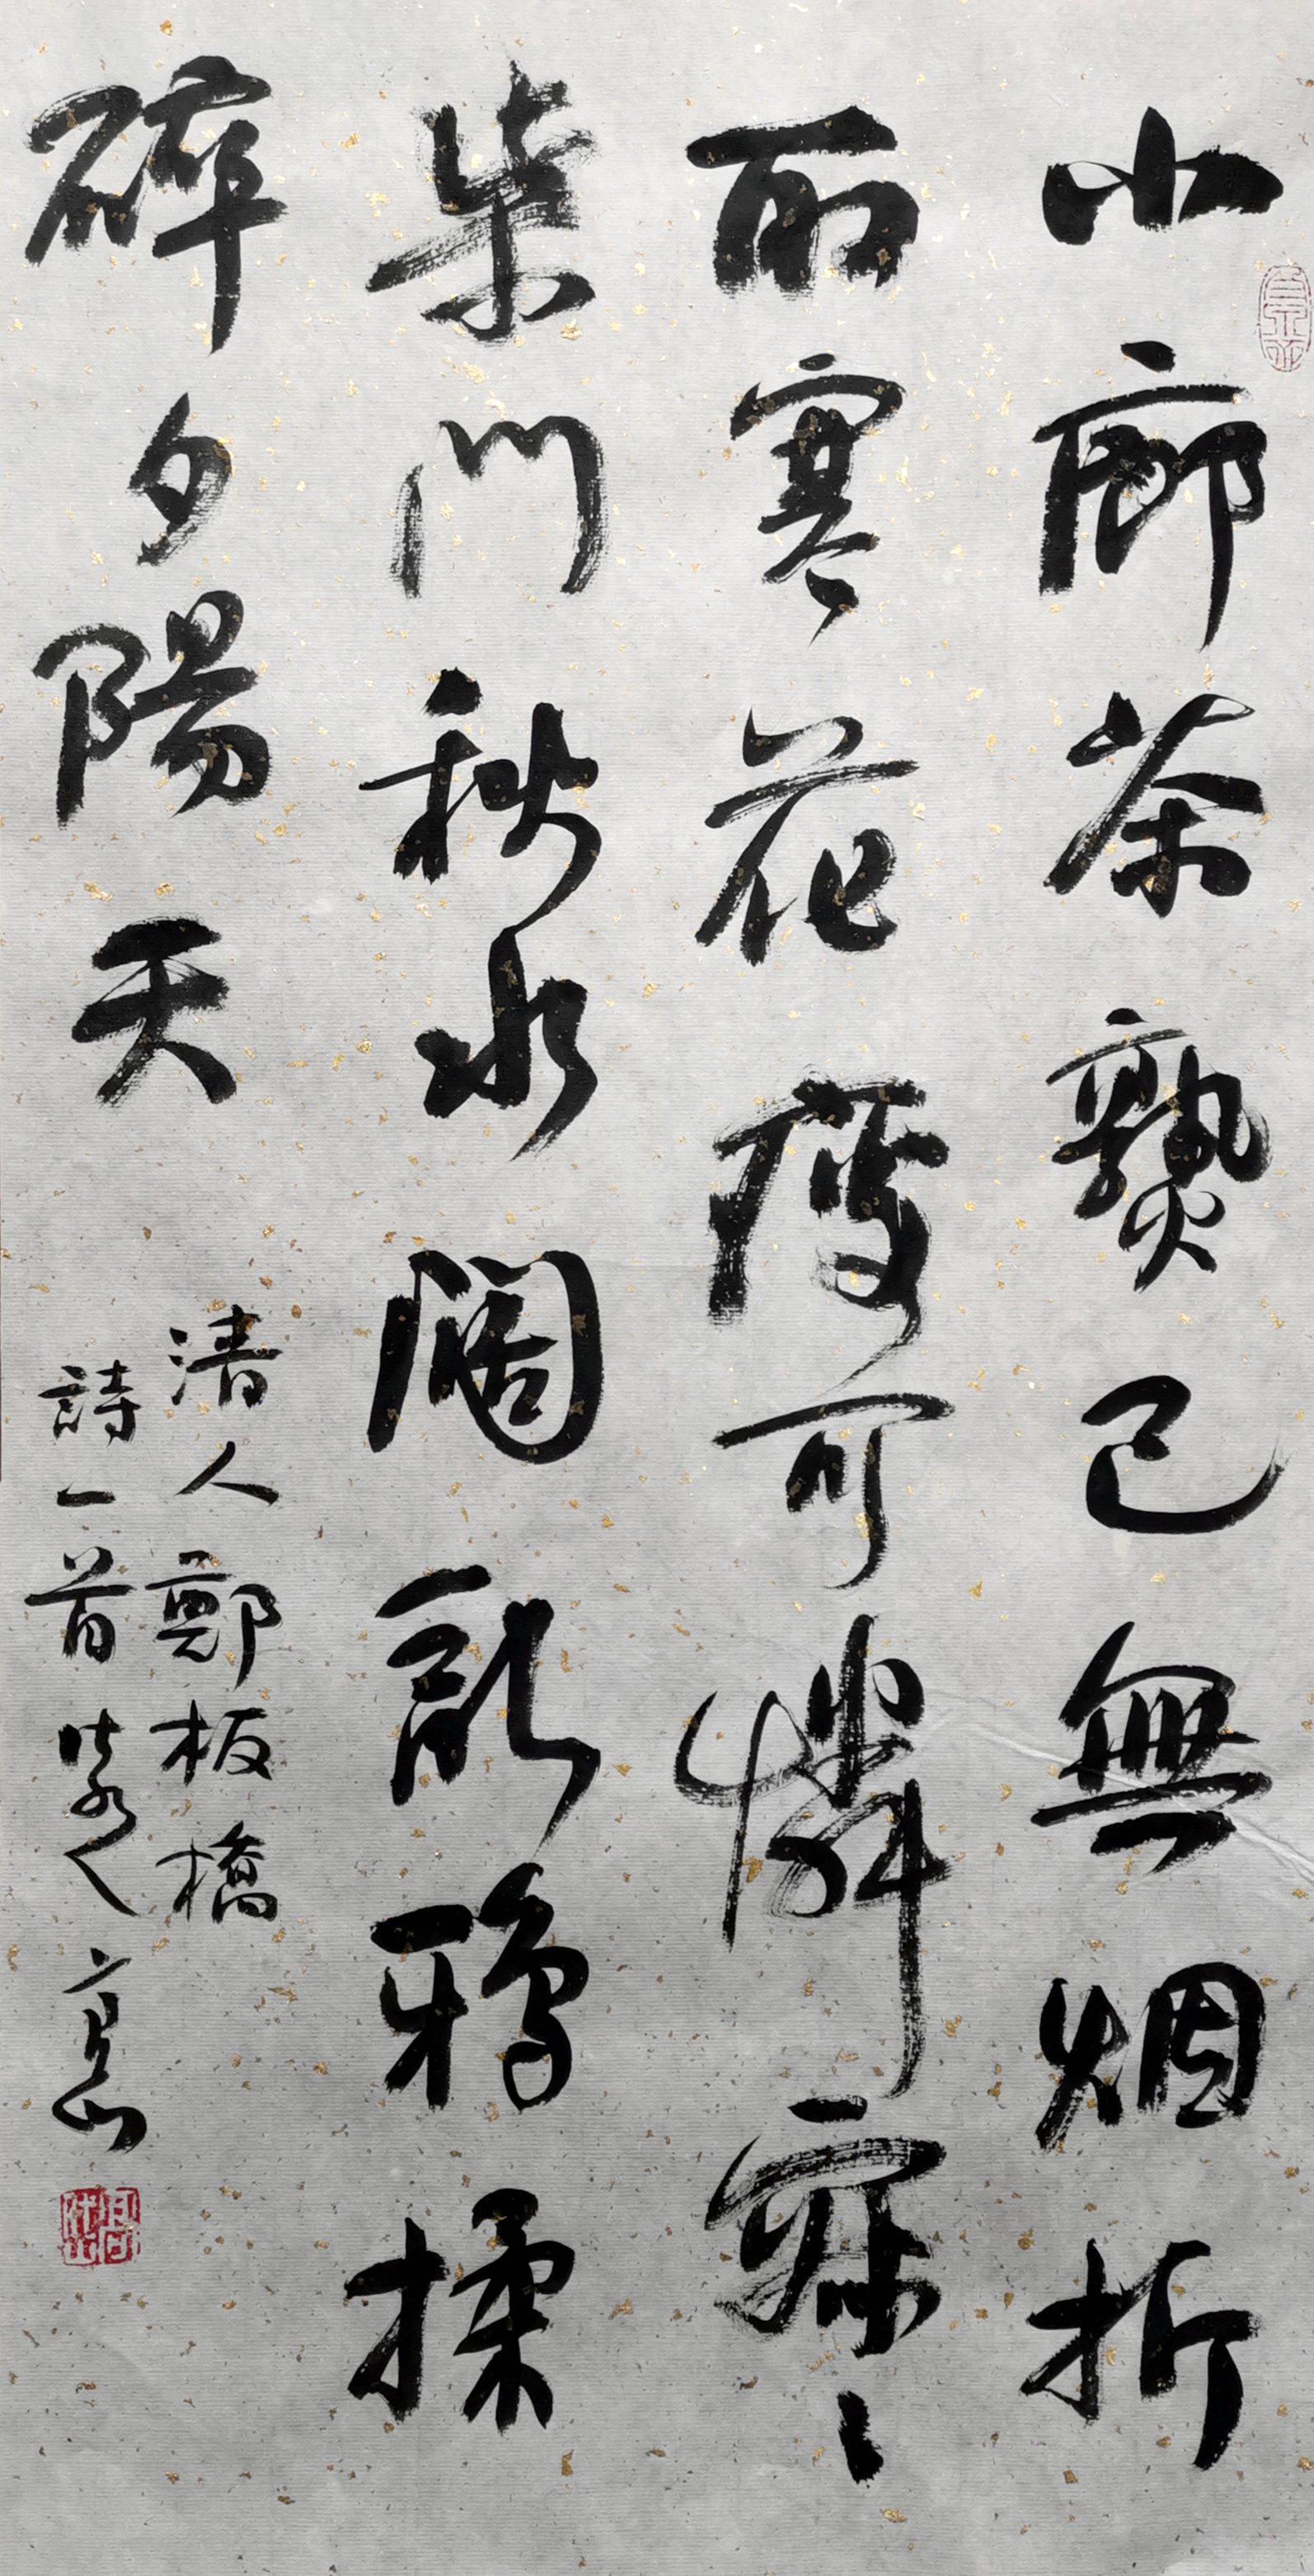 小廊茶熟已無烟折
取寒花瘦可憐寂〻
柴門秋水闊亂鴉揉
碎夕陽天
清人鄭板橋
詩一首